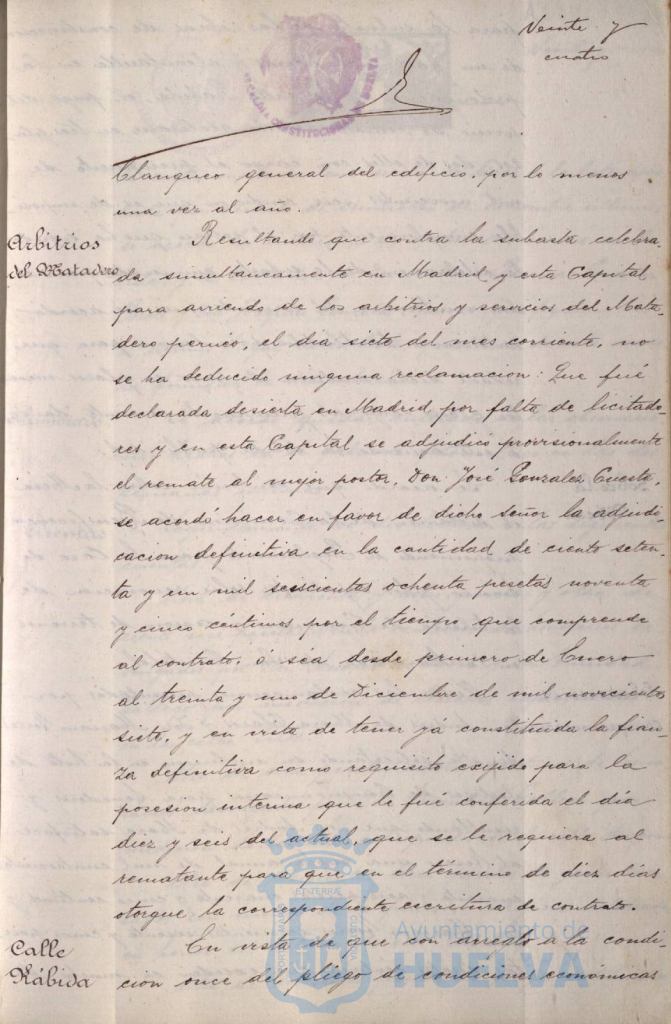 Veinte y
cuatro
ALCALDIA CONSTITUCIONAL DE HUELVA
blanqueo general del edificio, por lo menos
una vez al año.
Arbitrios
del Matadero
Resultando que contra la subasta celebra-
da simultáneamente en Madrid y esta Capital
para arriendo de los arbitrios y servicios del Mata-
dero perneo, el dia siete del mes corriente, no
se ha deducido ninguna reclamacion: Que fué
declarada desierta en Madrid por falta de licitado-
res y en esta Capital se adjudicó provisionalmente
el remate al mejor postor, Don José Gonzalez Cueste,
se acordó hacer en favor de dicho Señor la adjudi-
cacion definitiva en la cantidad de ciento seten-
ta y un mil seiscientas ochenta pesetas noventa
y cinco céntimos por el tiempo que comprende
al contrato, ó séa desde primero de Enero
al treinta y uno de Diciembre de mil novecientos
siete, y en vista de tener yá constituida la fian-
za definitiva como requisito exijido para la
posesion interina que le fué conferida el día
diez y seis del actual, que se le requiera al
rematante para que en el término de diez días
otorgue la correspondiente escritura de contrato.
Calle
Rábida
En vista de que con arreglo a la condi-
cion once del pliego de condiciones económicas
Ayuntamiento de
HUELVA